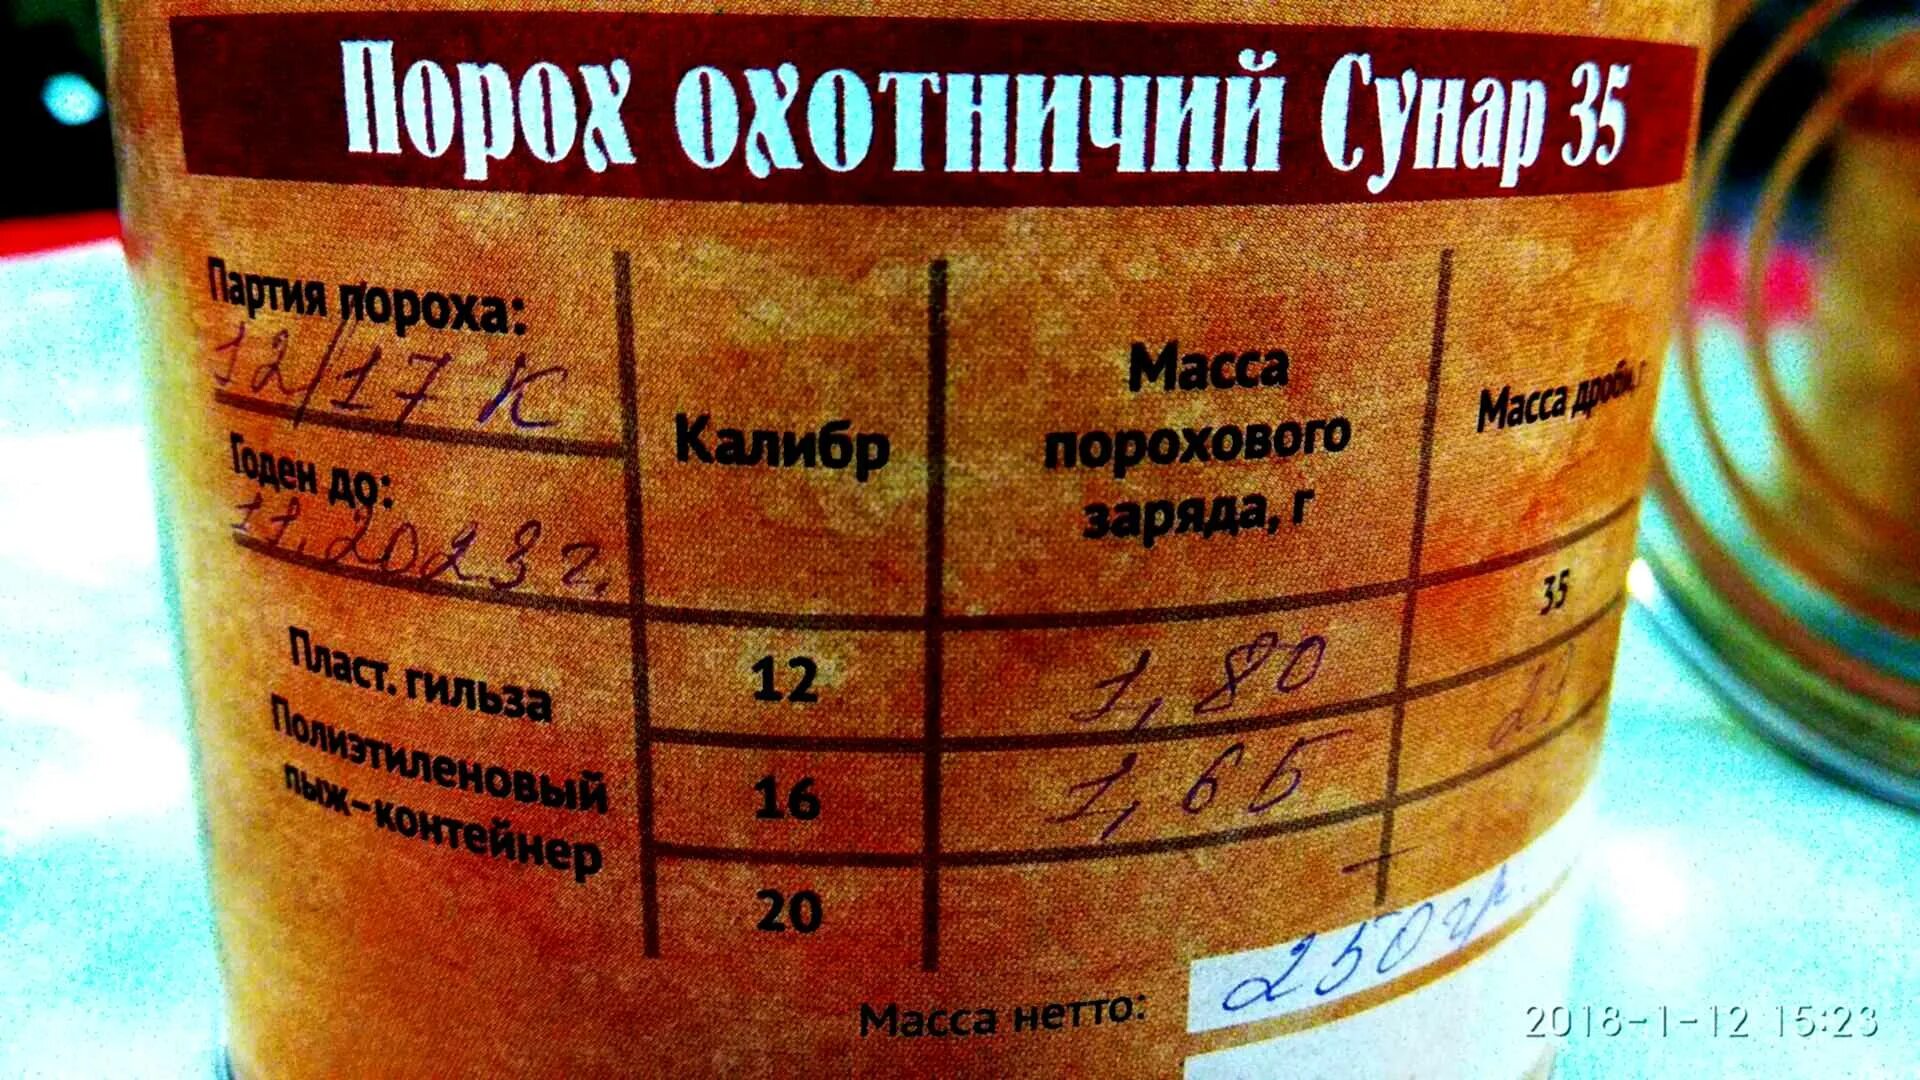 Порох охотничий Сунар 35
Партия пороха:
12/17 К
Годен до:
11.2023 г.
Калибр
Масса
порохового
заряда, г
Масса дроби, г
Пласт. гильза
Полиэтиленовый
пыж-контейнер
12 1,80 35
16 1,65
20 —
Масса нетто: 250 гр.
2018-1-12 15:23